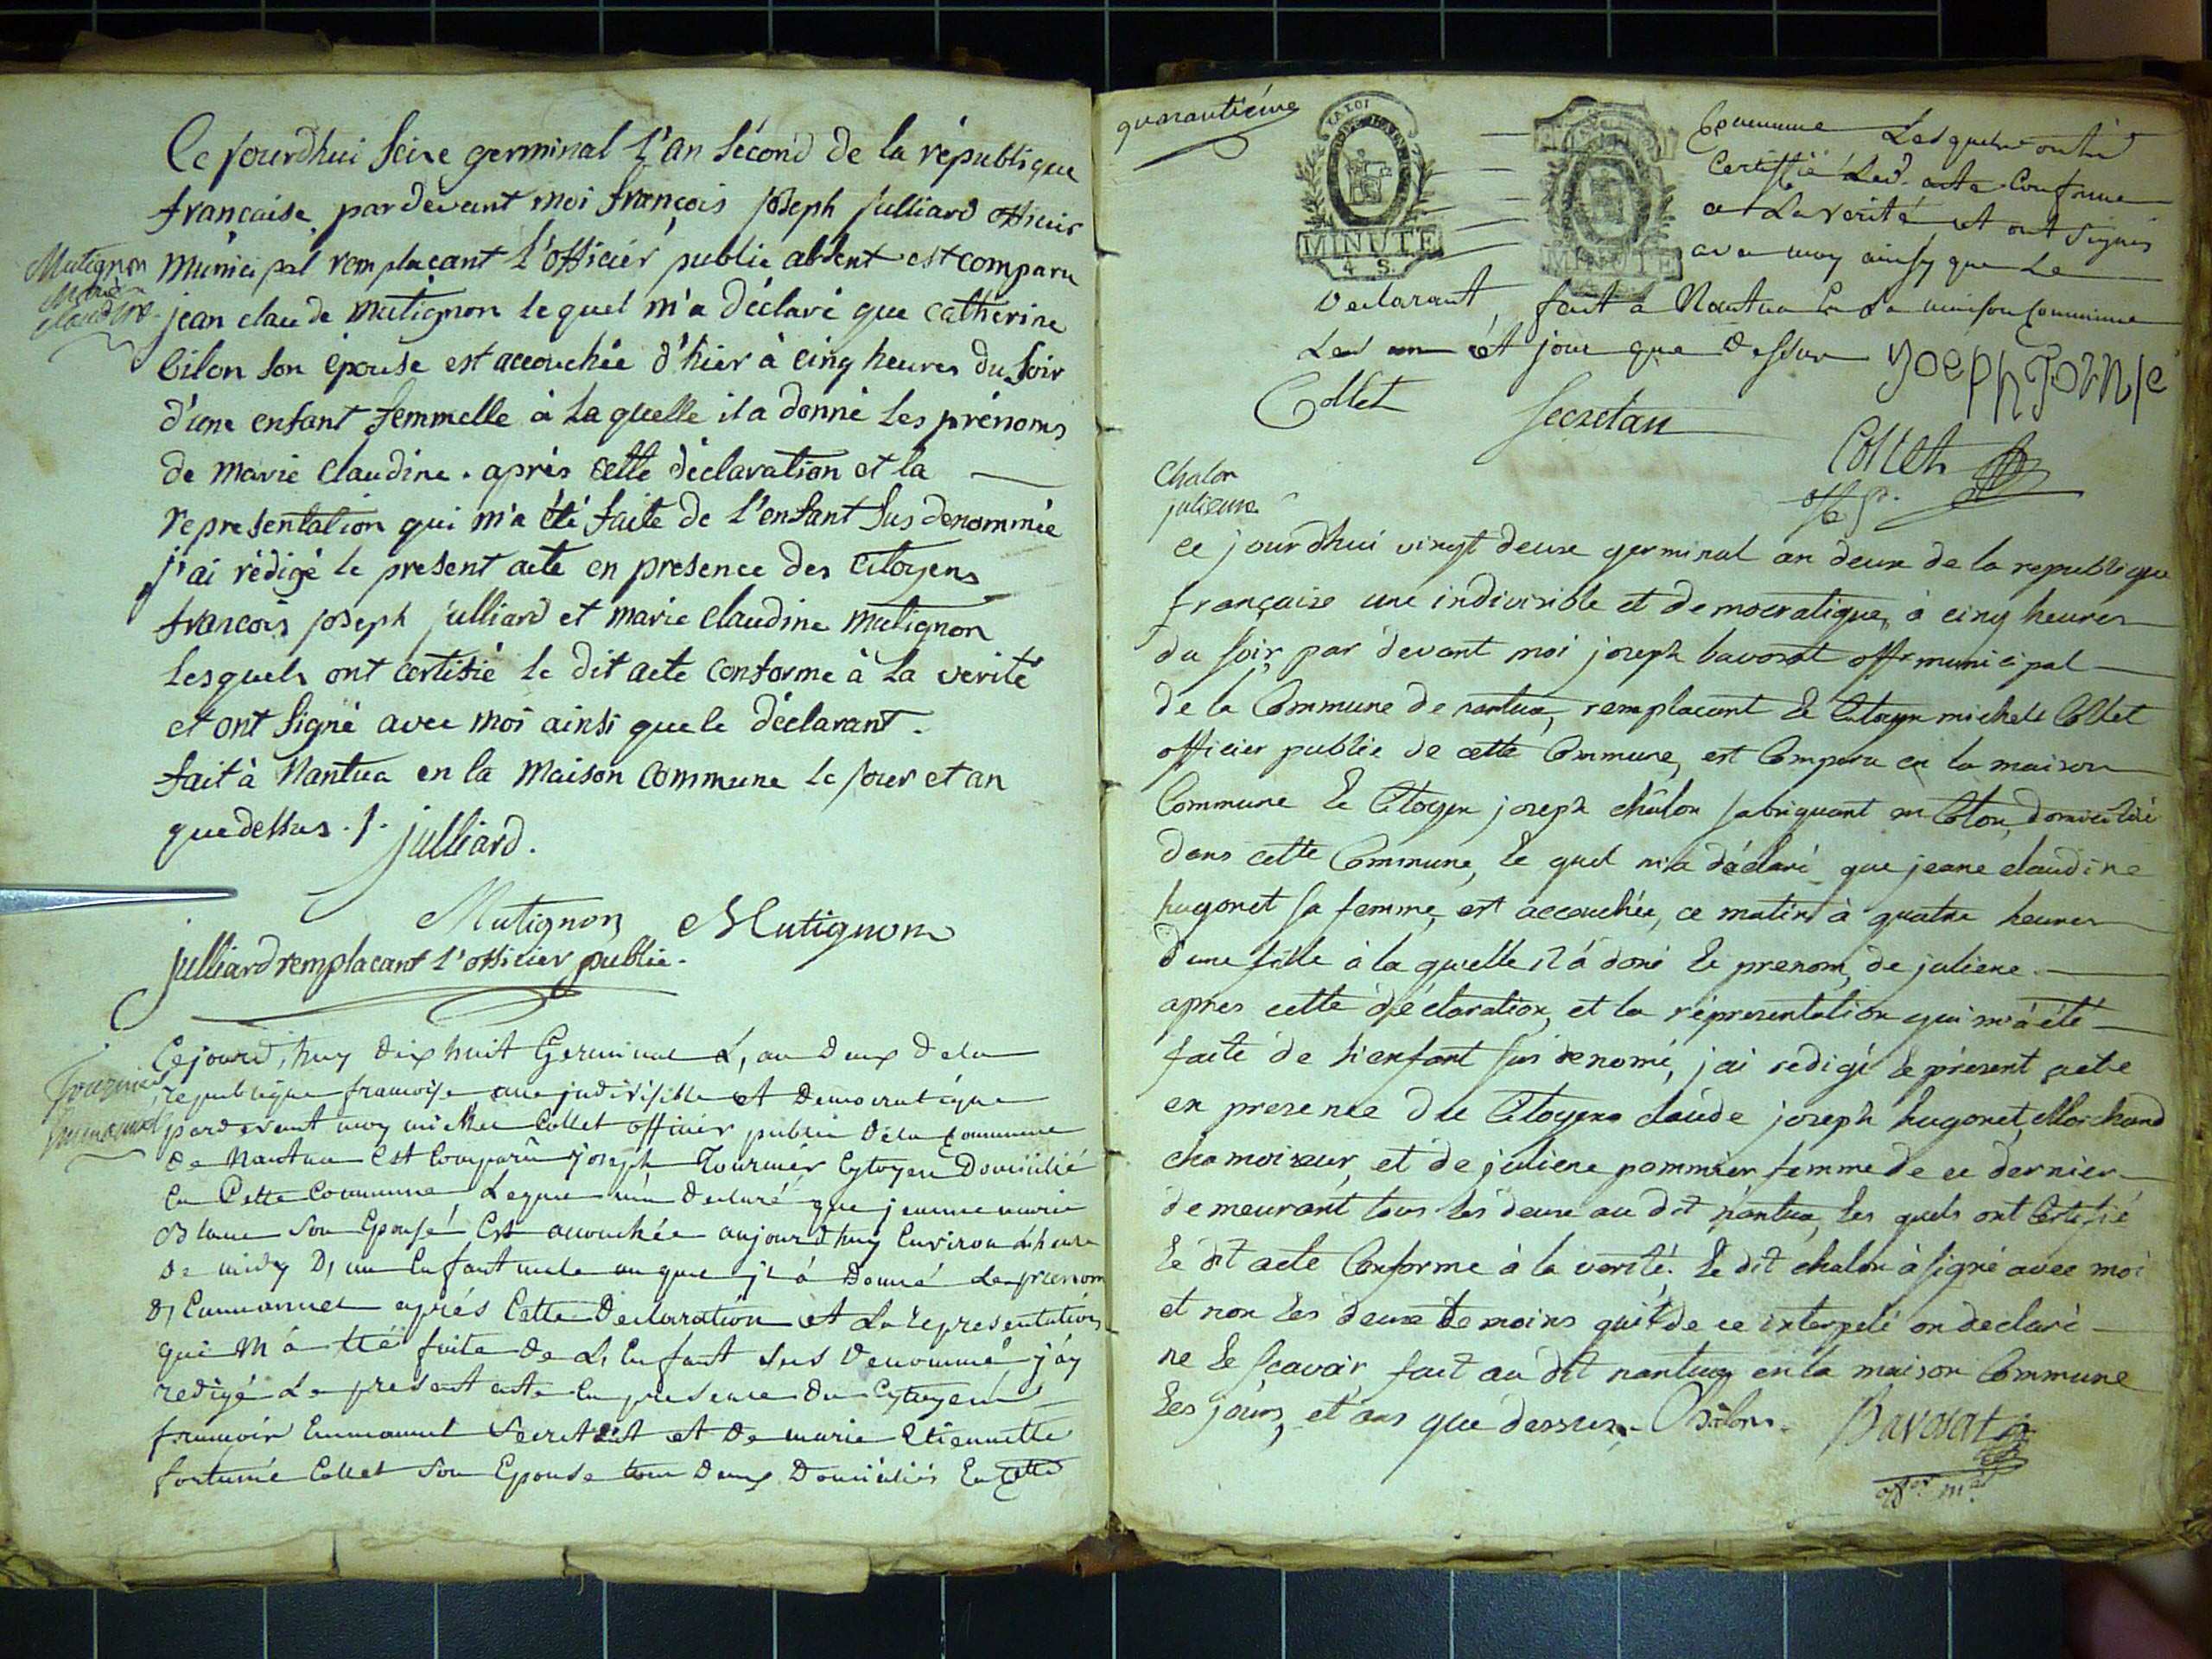 Ce jourdhui seize germinal l'an sécond de la république
francaise, pardevant moi françois joseph julliard officier
Mutignon
Marie
claudine
municipal remplacant l'officier public absent est comparu
jean claude mutignon lequel m'a déclaré que catherine
bilon son épouse est accouchée d'hier à cinq heures du soir
d'une enfant femmelle à laquelle il a donné les prénoms
de marie claudine. après cette déclaration et la
representation qui m'a été faite de l'enfant sus denommée
j'ai rédigé le present acte en presence des citoyens
francois joseph julliard et marie claudine mutignon
lesquels ont certifié le dit acte conforme à la verité
et ont signé avec moi ainsi que le déclarant.
fait à Nantua en la maison commune le jour et an
que dessus. /. julliard.
Mutignon Mutignon
julliard remplacant l'officier public.
Cejourd, huy dix huit Germinal L, an deux dela
republique francoise une jndivisible et Democratique
pardevant moy michel Collet officier public dela commune
de Nantua est Comparû joseph Tournier Cytoyen Domicilié
En Cette Commune Lequel m'a declaré que jeanne marie
Blanc son Epouse Est accouchée aujourdhuy Environ L'heure
de midy D, un Enfant male auquel jl á Donné Le prenom
D, Emmanuel aprés Cette Declaration et La representation
qui M á été faite de L, Enfant sus denommé j'ay
redigé Le present acte En presence du Cytoyen
francois Emmanuel Secretant et de marie Etiennette
fortuné Collet son Epouse tous deux Domiciliés En Cette
quarantiéme
LA LOI
MINUTE
4 S.
MINUTE
Commune Lesquels ont
Certiffié Led. acte Conforme
a La verité et ont signés
avec moy ainsy que Le
declarant, fait a Nantua En la maison Commune
Les an et jour que dessus joseph
Collet Secretan
Collet
off p.
chalon
juliene
ce jourdhui vingt deux germinal an deux de la republique
française une indivisible et democratique, à cinq heures
du soir par devant moi joseph bavozat offr municipal
de la Commune de nantua, remplacant le Citoyen michel Collet
officier public de cette Commune, est Comparu en la maison
Commune le Citoyen joseph châlon fabriquant en Coton, domicilié
dans cette Commune, le quel m'a déclaré que jeane claudine
hugonet sa femme, est accouchée, ce matin à quatre heures
d'une fille à la quelle il á doné le prenom, de juliene.
apres cette déclaration, et la répresentation qui m'á été
faite de l'enfant sus denomé, j'ai redigé le présent acte
en presence du Citoyen claude joseph hugonet, Marchand
chamoiseur, et de juliene pommier femme de ce dernier
demeurant tous les deux au dit nantua, les quels ont Certifié
le dit acte Conforme à la verité. le dit chalon à signé avec moi
et non les deux temoins qui de ce interpelé on declaré
ne le sçavoir, fait au dit nantua en la maison Commune
les jours, et ans que dessus. Châlon. Bavozat
offer mal